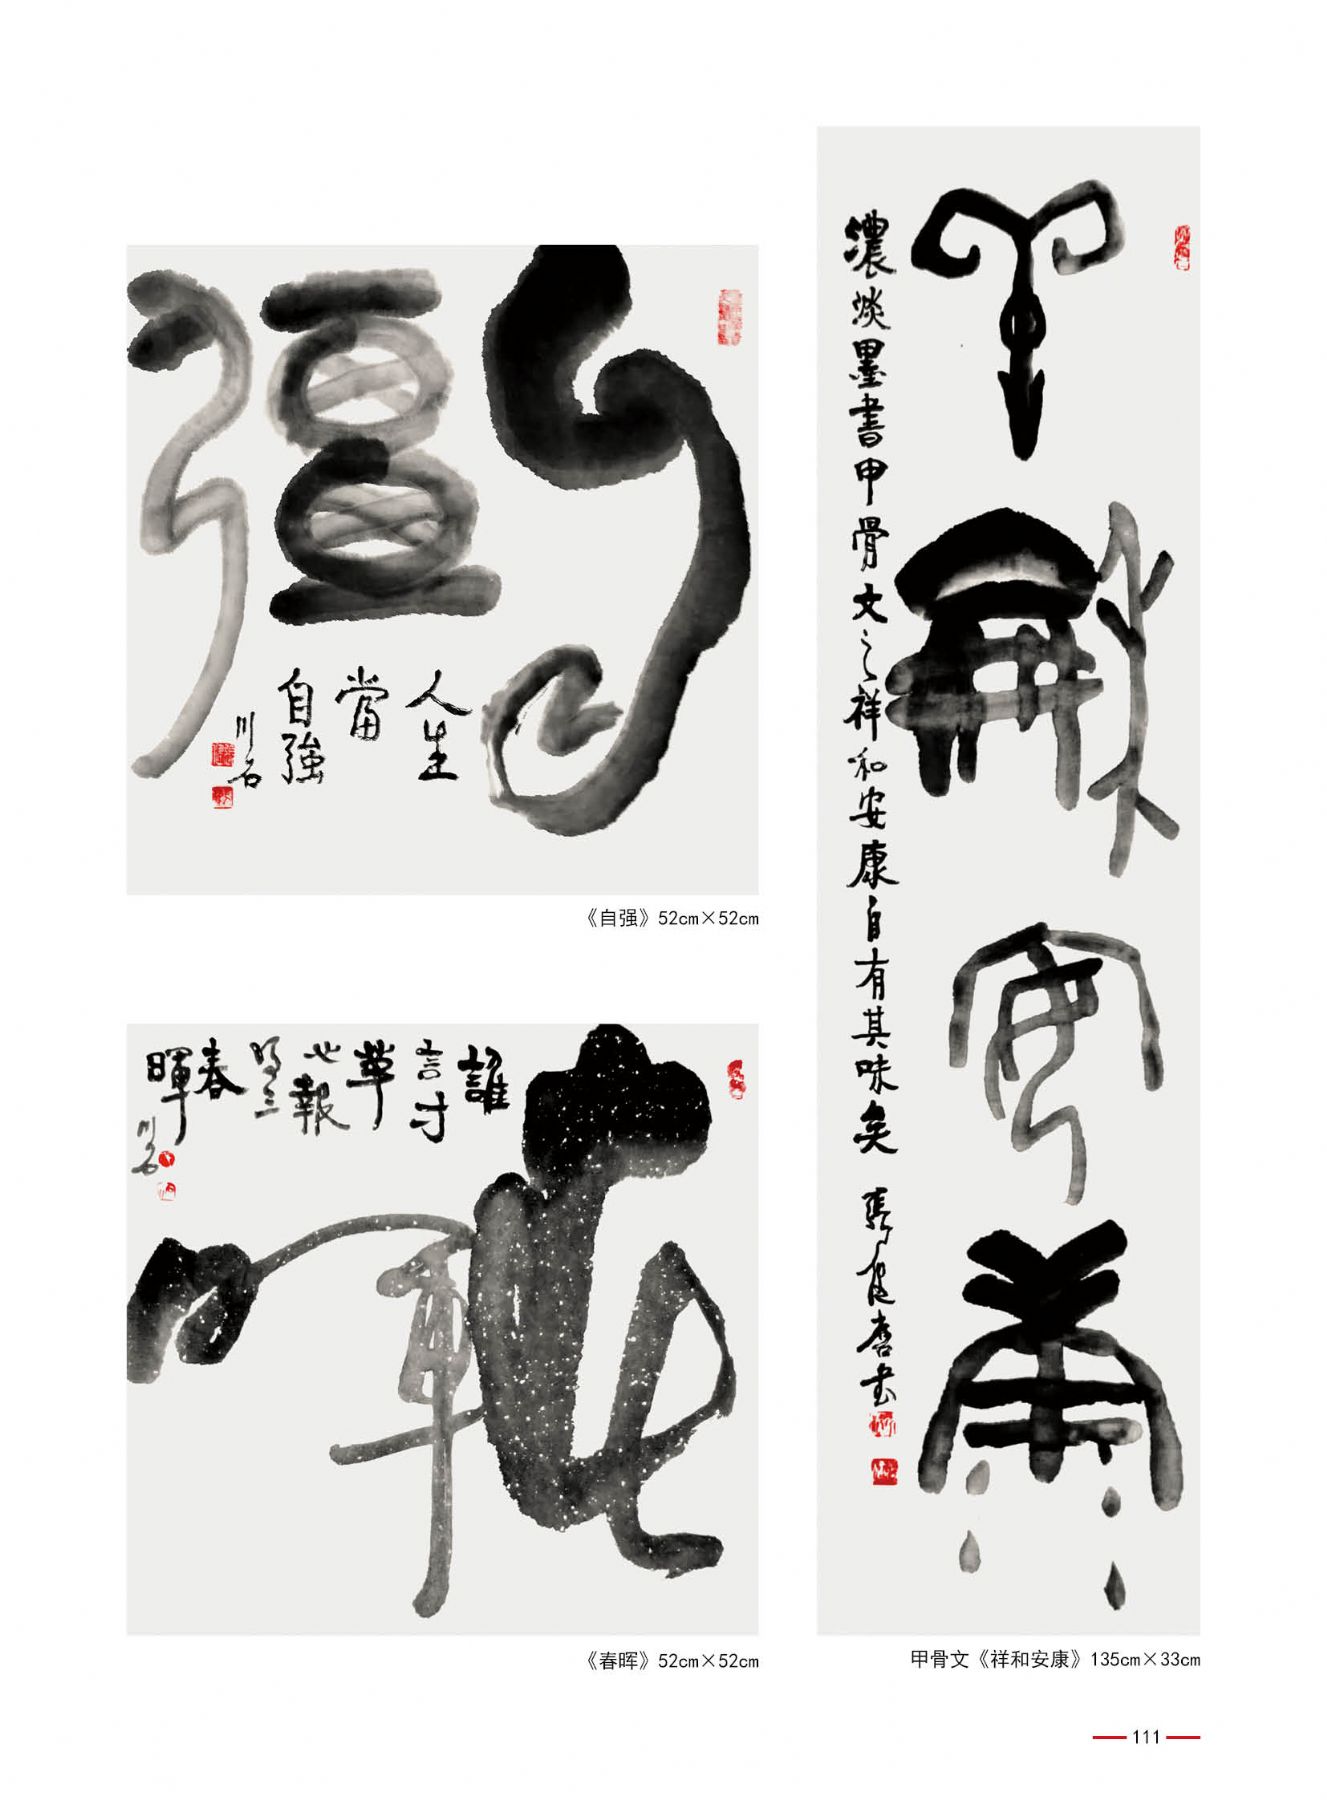 彊
人生
當
自強
川石
《自强》52cm×52cm
誰
言寸
草
心報
得三
春
暉
川石
《春晖》52cm×52cm
祥龢安康
濃淡墨書甲骨文之祥和安康自有其味矣 張 書
甲骨文《祥和安康》135cm×33cm
111